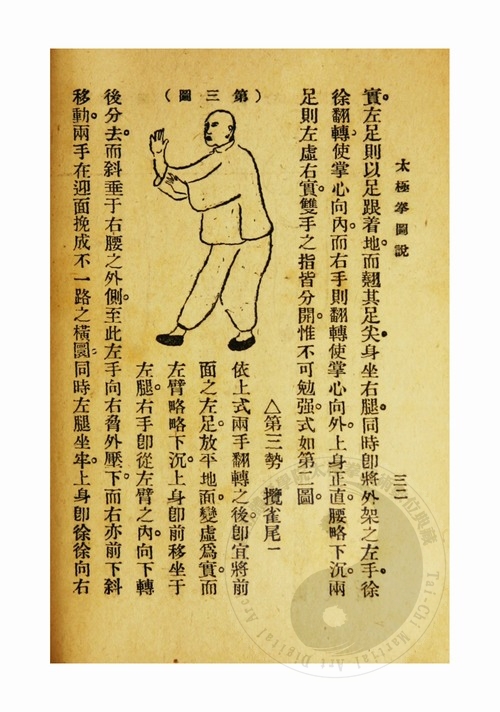 太極拳圖說
三二
實。左足則以足跟着地。而翹其足尖。身坐右腿。同時卽將外架之左手。徐
徐翻轉。使掌心向內。而右手則翻轉使掌心向外。上身正直。腰略下沉。兩
足則左虛右實。雙手之指皆分開。惟不可勉强。式如第二圖
△第三勢 攬雀尾一
（第三圖）
依上式兩手翻轉之後。卽宜將前
面之左足。放平地面。變虛爲實。而
左臂略略下沉。上身卽前移坐于
左腿。右手卽從左臂之內。向下轉
後分去。而斜垂于右腰之外側。至此左手向右脅外壓下。而右亦前下斜
移動。兩手在迎面挽成不一路之橫圜。同時左腿坐牢。上身卽徐徐向右
Tai-Chi Martial Art Digital